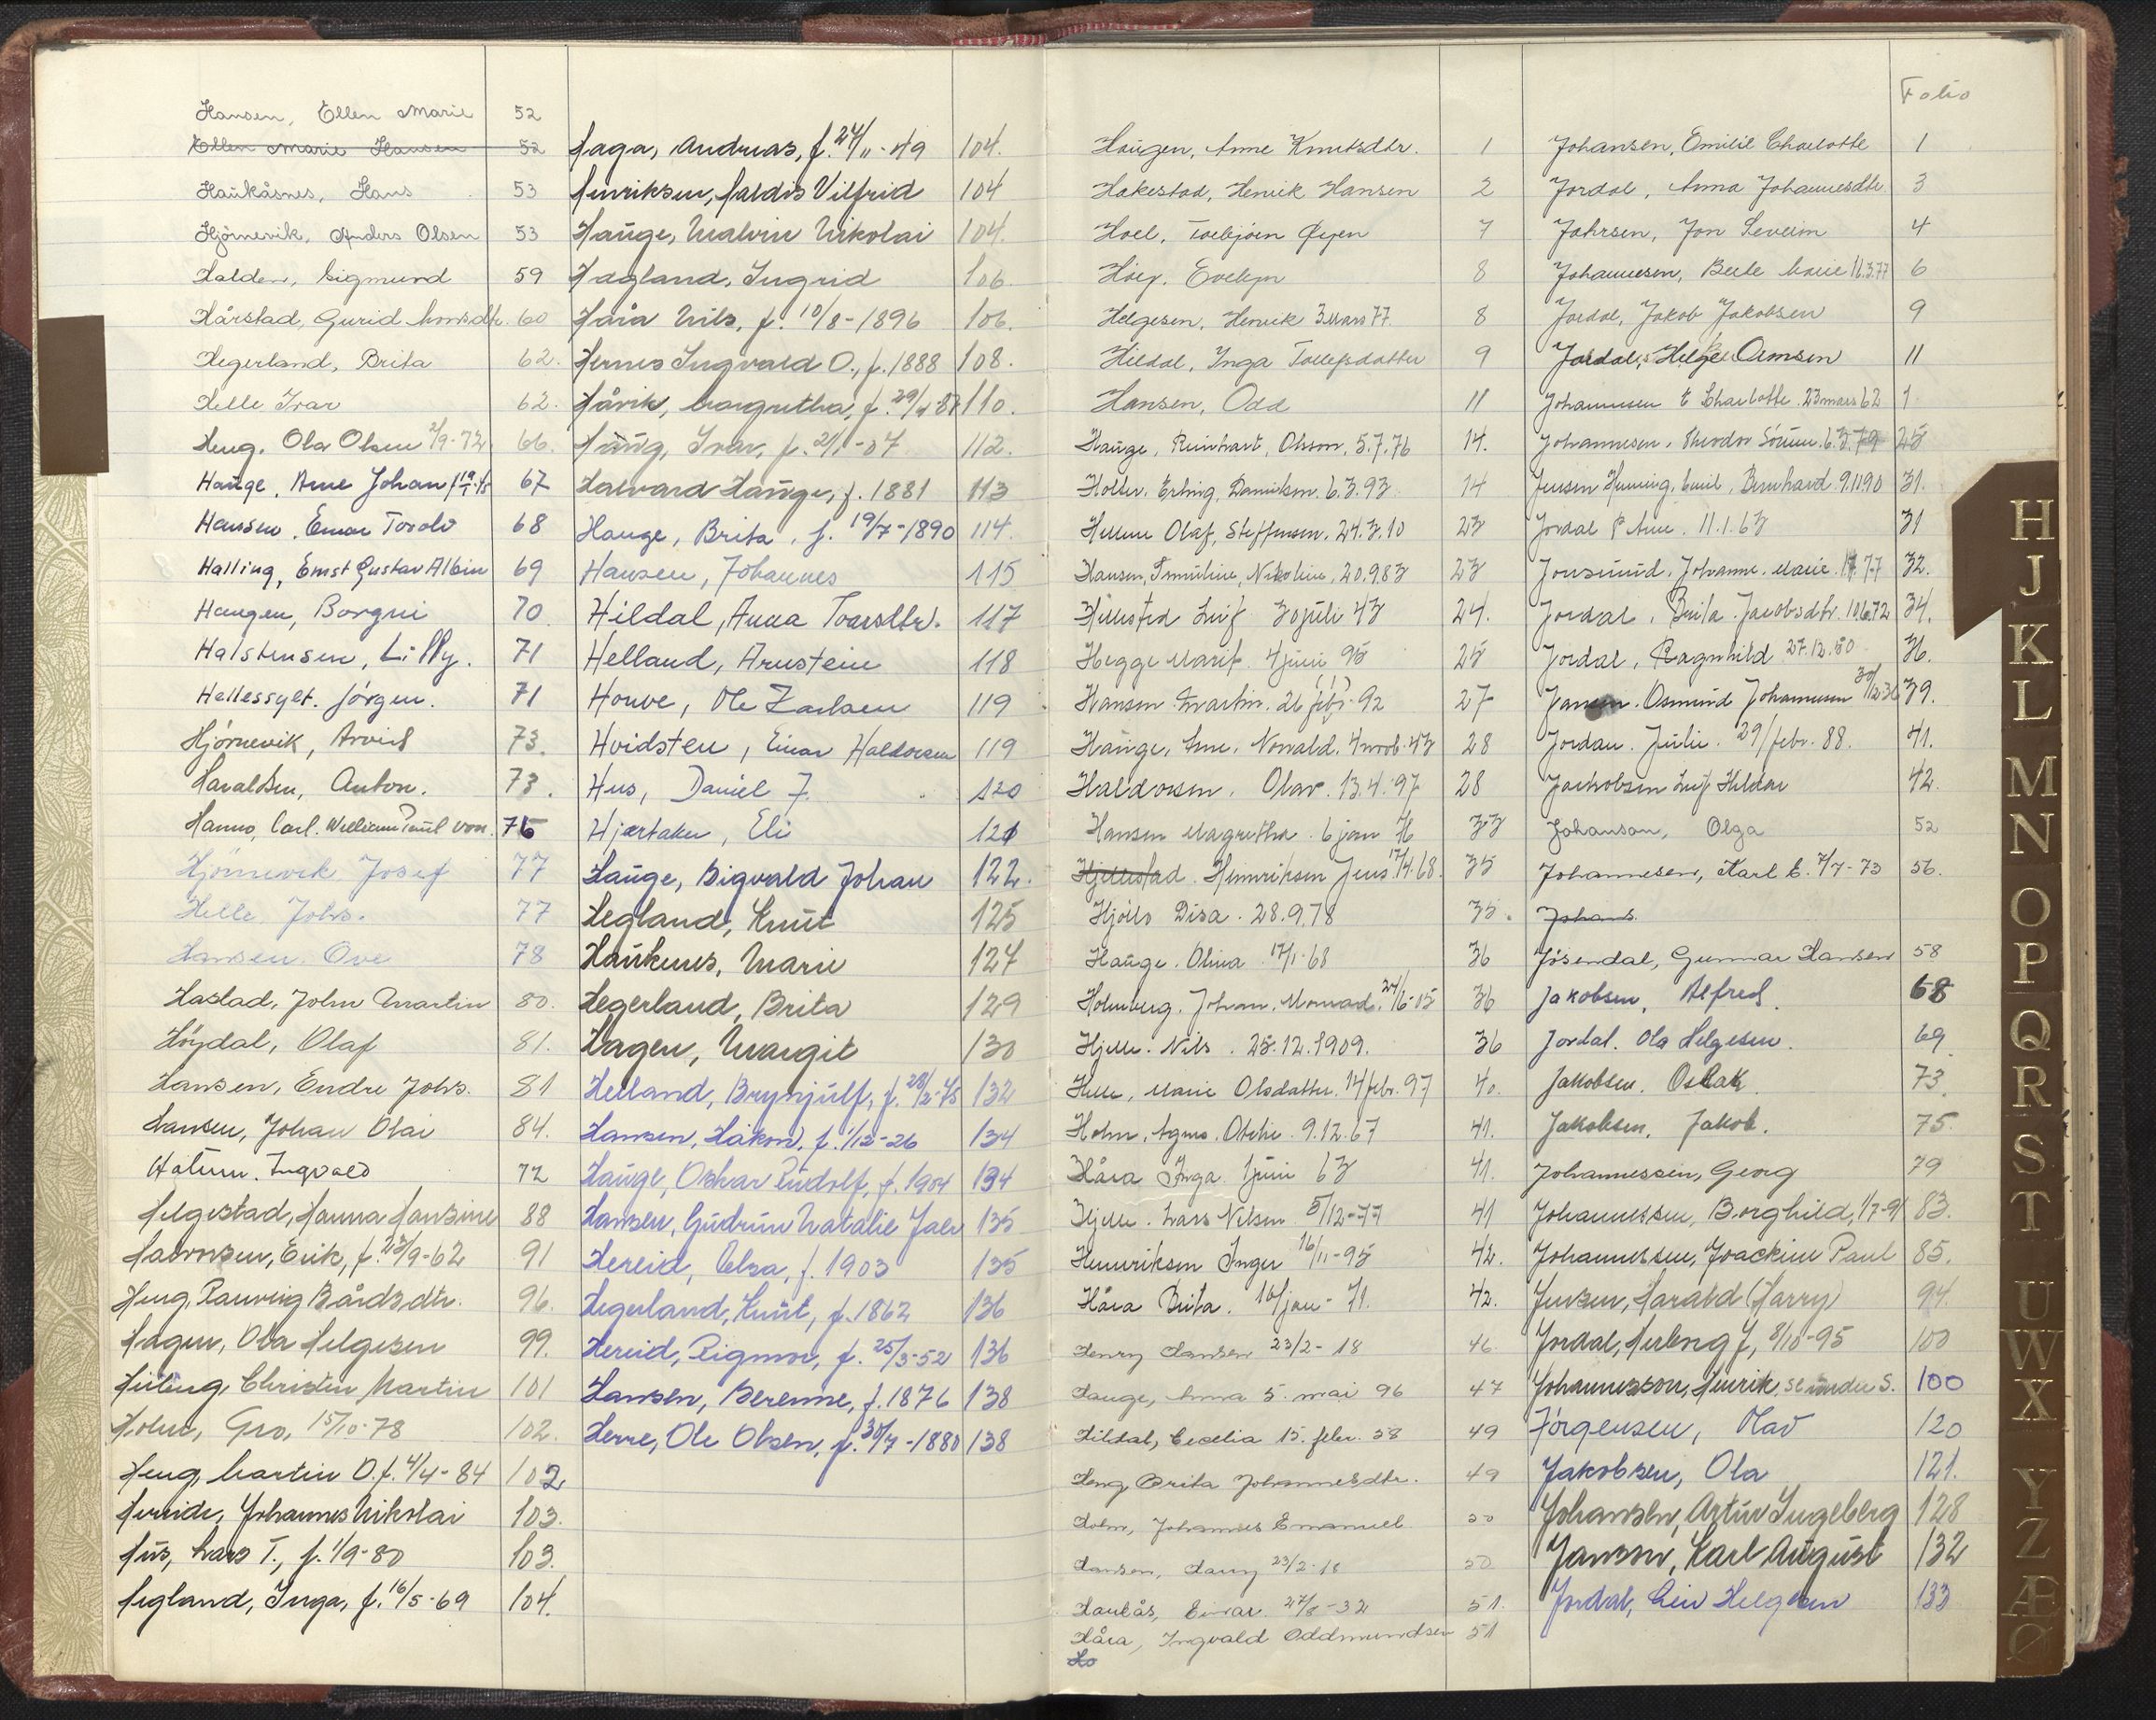 Hansen, Ellen Marie 52
Ellen Marie Hansen 52
Haukåsnes, Hans 53
Hjörnevik, Anders Olsen 53
Halden, Sigmund 59
Hårstad, Gurid 60
Hegerland, Brita 62.
Helle Ivar 62.
Heng, Ola Olsen 2/9-72 66
Hauge, Arne Johan 67
Hansen, Einar Torolv 68
Halling, Ernst Gustav Albin 69
Haugen, Borgni 70
Halstensen, Lilly. 71
Hellessylt, Jörgen. 71
Hjörnevik, Arvid 73.
Haraldsen, Anton. 73.
Hanno, Carl. William Paul von. 75
Hjörnevik Josef 77
Helle, Johs. 77
Hansen, Ove 78
Hastad, John Martin 80.
Höydal, Olaf 81.
Hansen, Endre Johs. 81
Hansen, Johan Olai 84.
Hatum. Ingvald 72
Helgestad, Hanna Hansine 88
Erik, f. 23/9-62 91
Heng, Bårdsdtr. 96.
Hagen, Ola Helgesen 99.
Christen Martin 101
Holm, Gro, 15/10-78 102.
Heng, Martin O. f. 4/4-84 102
Johannes Nikolai 103.
Hus, Lars T., f. 1/9-80 103.
Hegland, Inga, f. 16/5-69 104.
Haga, Andreas, f. 24/11-49 104.
Henriksen, Haldis Vilfrid 104
Hauge, Malvin Nikolai 104.
Hagland, Ingrid 106
Håra Nils, f. 10/8-1896 106.
Hernes Ingvald O., f. 1888 108.
Håvik, Margretha, f. 110.
Haug, Ivar, f. 112.
Halvard Hauge, f. 1881 113
Hauge, Brita, f. 19/7-1890 114.
Hansen, Johannes 115
Hildal, Anna Ivarsdtr. 117
Helland, Arnstein 118
Houve, Ole 119
Hvidsten, Einar Haldorsen 119
Hus, Daniel J. 120
Hjartaker, Eli 121
Hauge, Sigvald Johan 122.
Hegland, Knut 125
Haukenes, Marie 127
Hegerland, Brita 129
Hagen, Margit 130
Helland, Brynjulf, f. 28/2-75 132
Hansen, Håkon, f. 1/12-26 134
Hauge, Oskar Rudolf, f. 1904 134
Hansen, Gudrun Natalie 135
Hereid, Elsa, f. 1903 135
Hegerland, Knut, f. 1862 136
Hereid, Rigmor, f. 25/3-52 136
Hansen, Berenne, f. 1876 138
Herre, Ole Olsen, f. 30/7-1880 138
Haugen, Anne Knutsdtr. 1
Hakestad, Henrik Hansen 2
Hoel, Torbjörn Øyen 7
Höeg, Evelyn 8
Helgesen, Henrik 3 Mars 77. 8
Hildal, Inga Tollefsdatter 9
Hansen, Odd 11
Hauge, Reinhart, Olsson, 5.7.76 14.
Erling, Danielsen. 6.3.93 14
Olaf, Steffensen. 24.3.10 23
Hansen, Nikoline, 20.9.83 23
Hillestad Leif 30 juli 43 24.
Hegge Marit. 4 juni 95 25
Hansen Martin. 26 febr. 92 27
Hauge, Arne, 28
Haldorsen. Olav. 13.4.97 28
Hansen Margretha. 6 jan 76 33
Hjellestad. Henriksen Jens 17/4.68. 35
Hjölls Disa. 28.9.78 35.
Hauge. Olina 17/1-68 36
Holmberg. Johan. Monrad. 24/6-05 36
Hjelle. Nils. 25.12.1909. 36
Helle, Marie Olsdatter. 14 febr. 97 40.
Holm, Agnes. 9.12.67 41.
Håra Inga. 1 juni 63 41.
Hjelle. Lars Nilsen 5/12-77 41
Henriksen Inger 16/11-95 42.
Håra Brita. 16/jan-71. 42.
Henry Hansen 23/2-18 46
Hauge, Anna 5. mai 96 47
Hildal, Cecelia 15. febr. 58 49
Heng, Brita Johannesdtr. 49
Holm, Johannes Emanuel 50
Hansen, Harry 23/2-18 50
Haukås, Einar 27/8-32 51.
Håra, Ingvald Oddmundsen 51
Ho
Folio
Johansen, Emilie Charlotte 1
Jordal, Anna Johannesdtr 3
Jahrsen, Jon Severin 4
Johannesen, Berte Marie 11.3.77 6
Jordal, Jakob Jakobsen 9
Jordal, Helge Omsen 11
Johannesen E Charlotte. 23 mars 62 1
Johannesen. Theodor Sörine. 6.3.79 25
Jensen Henning, Emil, Bernhard 9.11.90 31.
Jordal P Arne. 11.1.63 31
Johanne. Marie. 32.
Jordal, Brita. Jacobsdtr. 10.6.72 34.
Jordal, Ragnhild 27.12.50 36.
Jansen. Osmund Johannesen 39.
Jordan. Julie. 29/febr. 88. 41.
Jacobsen Leif Hildar 42.
Johanson, Olga 52
Johannesen, Karl E. 7/7-73 56.
Johans
Jösendal, Gunnar Hansen 58
Jakobsen, Alfred. 68
Jordal. Ola Helgesen. 69
Jakobsen. Oslak 73.
Jakobsen. Jakob. 75.
Johannessen, Georg 79
Johannessen, Borghild, 1/7-91 83.
Johannessen, Joackim Paul 85.
Jensen, Harald (Harry) 94.
Jordal, Herborg J, 8/10-95 100
Johannesson, Henrik, se under S. 100
Jörgensen, Olav 120
Jakobsen, Ola 121.
Johansen, Artur Ingeberg 128
Janson, Karl August 132
Jordal, Leiv Helgesen 133
H
J
K
L
M
N
O
P
Q
R
S
T
U
W
X
Y
Z
Æ
Ø